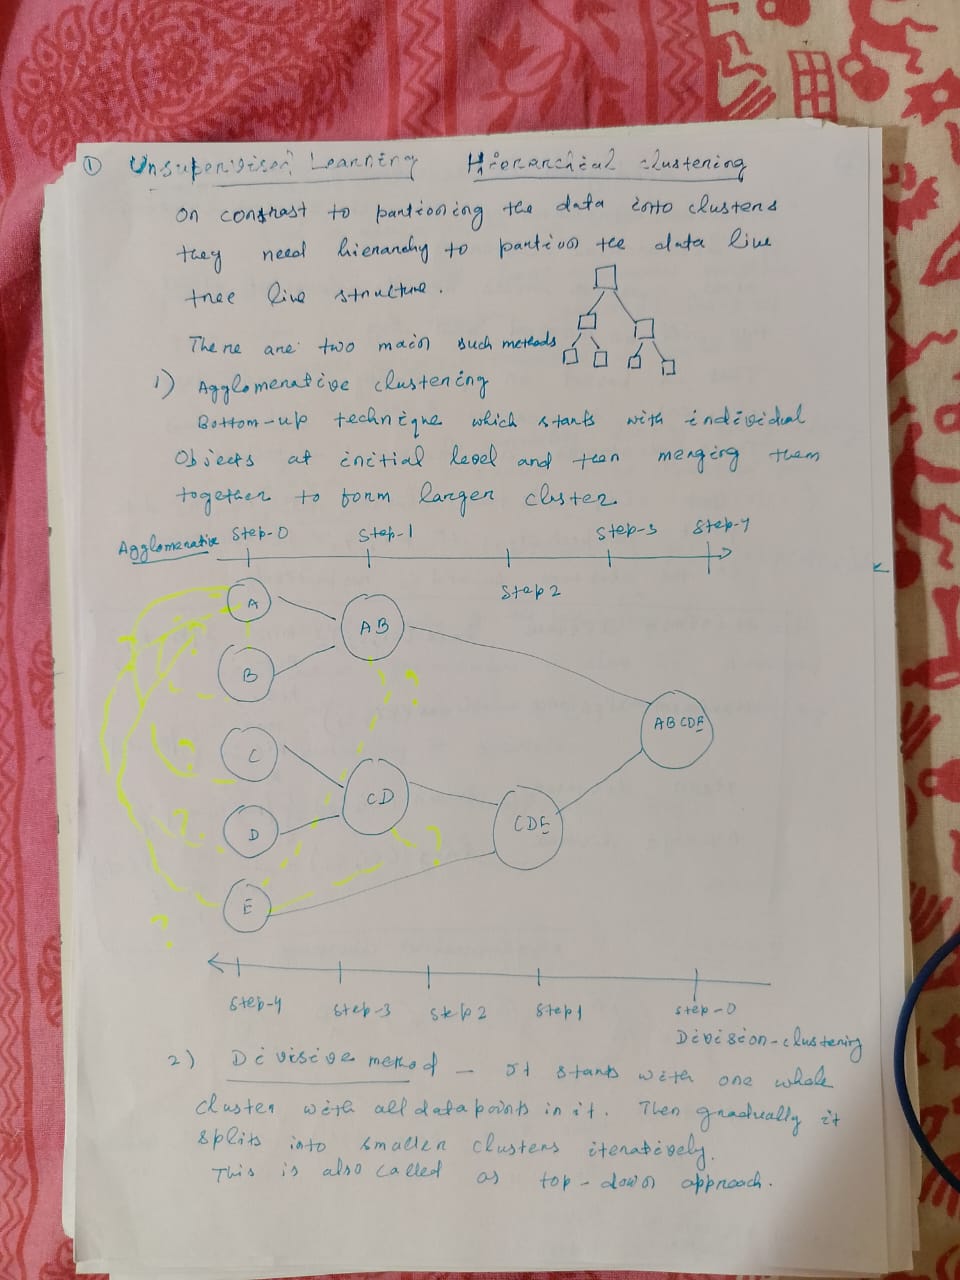 ① Unsupervised Learning Hierarchical clustering
On contrast to partioning the data into clusters
they need hierarchy to partion the data like
tree like structure.
There are two main such methods
1) Agglomerative clustering
Bottom-up technique which starts with individual
Objects at initial level and then merging them
together to form larger cluster.
Agglomerative Step-0 Step-1 Step 2 Step-3 Step-4
A
B
C
D
E
AB
CD
CDE
ABCDE
? ? ? ? ?
Step-4 Step-3 Step 2 Step 1 Step-0
Division-clustering
2) Divisive method - It starts with one whole
cluster with all datapoints in it. Then gradually it
splits into smaller clusters iteratively.
This is also called as top-down approach.